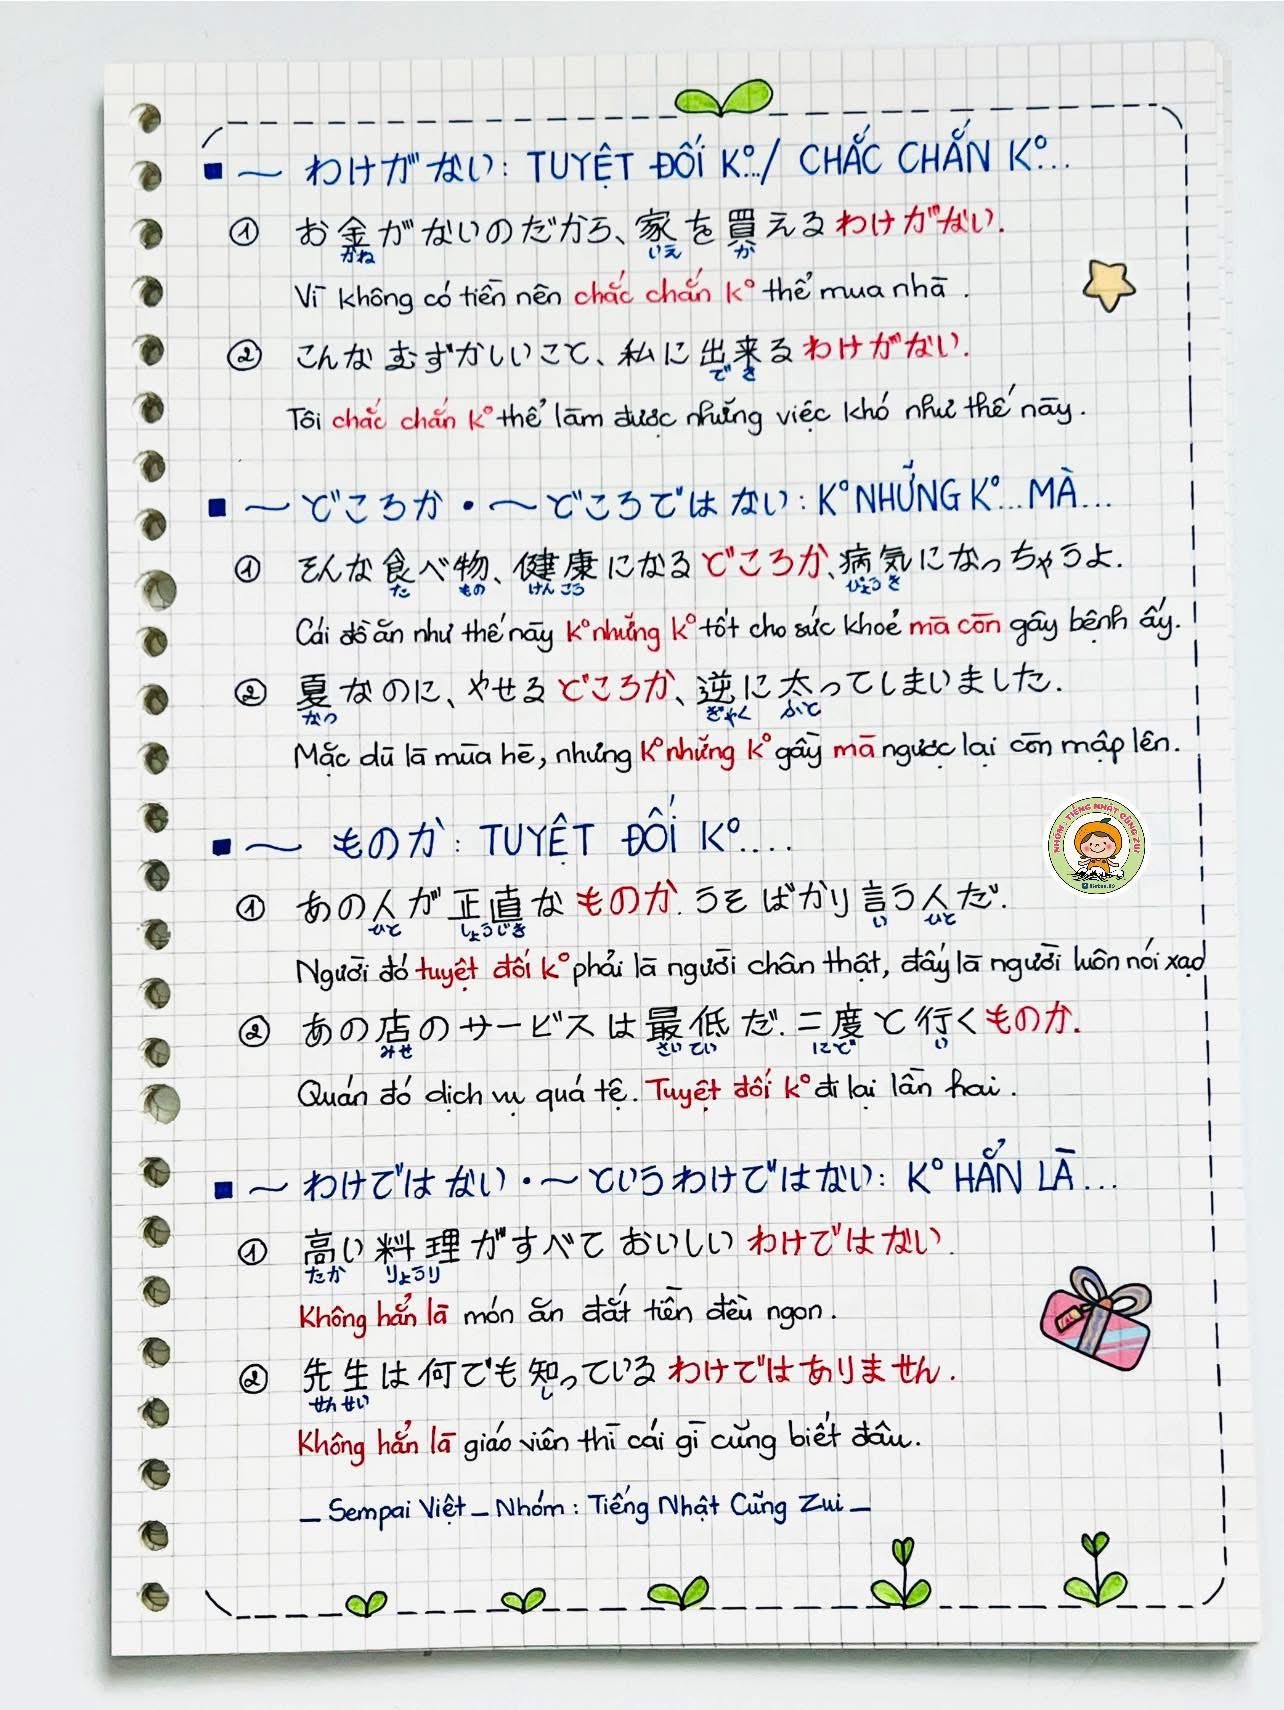 ■ ～ わけがない: TUYỆT ĐỐI K°../ CHẮC CHẮN K°...
① お金がないのだから、家を買えるわけがない.
かね いえ か
Vì không có tiền nên chắc chắn k° thể mua nhà.
② こんなむずかしいこと、私に出来るわけがない.
で き
Tôi chắc chắn k° thể làm được những việc khó như thế này.
■ ～どころか・～どころではない: K° NHỮNG K°...MÀ...
① そんな食べ物、健康になるどころか、病気になっちゃうよ.
た もの けん こう びょう き
Cái đồ ăn như thế này k° những k° tốt cho sức khoẻ mà còn gây bệnh ấy.
② 夏なのに、やせるどころか、逆に太ってしまいました.
なつ ぎゃく ふと
Mặc dù là mùa hè, nhưng k° những k° gầy mà ngược lại còn mập lên.
■ ～ ものか: TUYỆT ĐỐI K°....
① あの人が正直なものか. うそばかり言う人だ.
ひと しょうじき い ひと
Người đó tuyệt đối k° phải là người chân thật, đấy là người luôn nói xạo
② あの店のサービスは最低だ. 二度と行くものか.
みせ さい てい にど い
Quán đó dịch vụ quá tệ. Tuyệt đối k° đi lại lần hai.
■ ～わけではない・～というわけではない: K° HẲN LÀ...
① 高い料理がすべておいしいわけではない.
たか りょうり
Không hẳn là món ăn đắt tiền đều ngon.
② 先生は何でも知っているわけではありません.
せん せい し
Không hẳn là giáo viên thì cái gì cũng biết đâu.
_ Sempai Việt _ Nhóm: Tiếng Nhật Cũng Zui _
NHÓM: TIẾNG NHẬT CŨNG ZUI